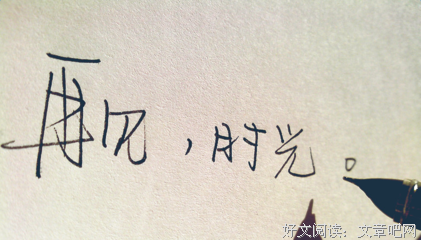 再见，时光。
好文阅读：文章吧网